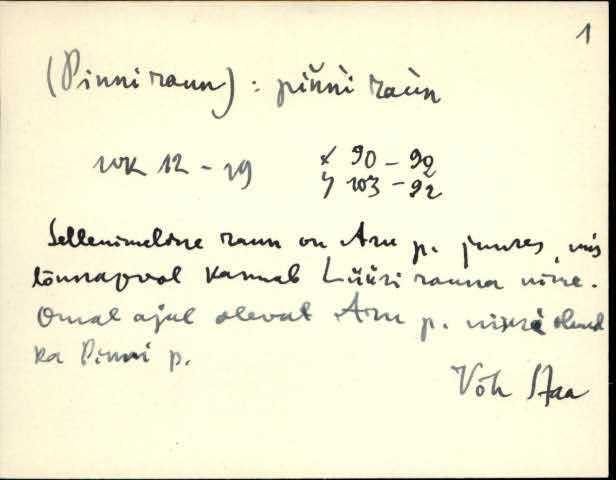 1
(Pinni raun) : pin̆nì raùn
wk 12 - 19 x 90 - 92
y 103 - 92
Sellenimeline raun on Aru p. juures, mis
tõnapool kannab Lüüsi rauna nime.
Omal ajal olevat Aru p. nimi olnud
ka Pinni p.
Võn Saa